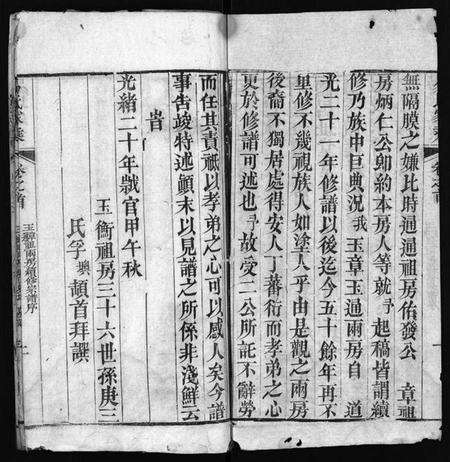 無隔膜之嫌比時通過祖房佑發公 章祖
房炳仁公卽約本房人等就予起稿皆謂續
修乃族中巨典況我玉章玉過兩房自 道
光二十一年修譜以後迄今五十餘年再不
里修不幾視族人如塗人乎由是觀之兩房
後裔不獨居處得安人丁蕃衍而孝弟之心
更於修譜可述也予故受二公所託不辭勞
而任其責祇以孝弟之心可以感人矣今譜
事吿竣特述顛末以見譜之所係非淺鮮云
旹
光緒二十年歲官甲午秋
玉衡祖房三十六世孫庚三
氏孚 頓首拜譔
卷之首
玉章祖兩房續修家譜序